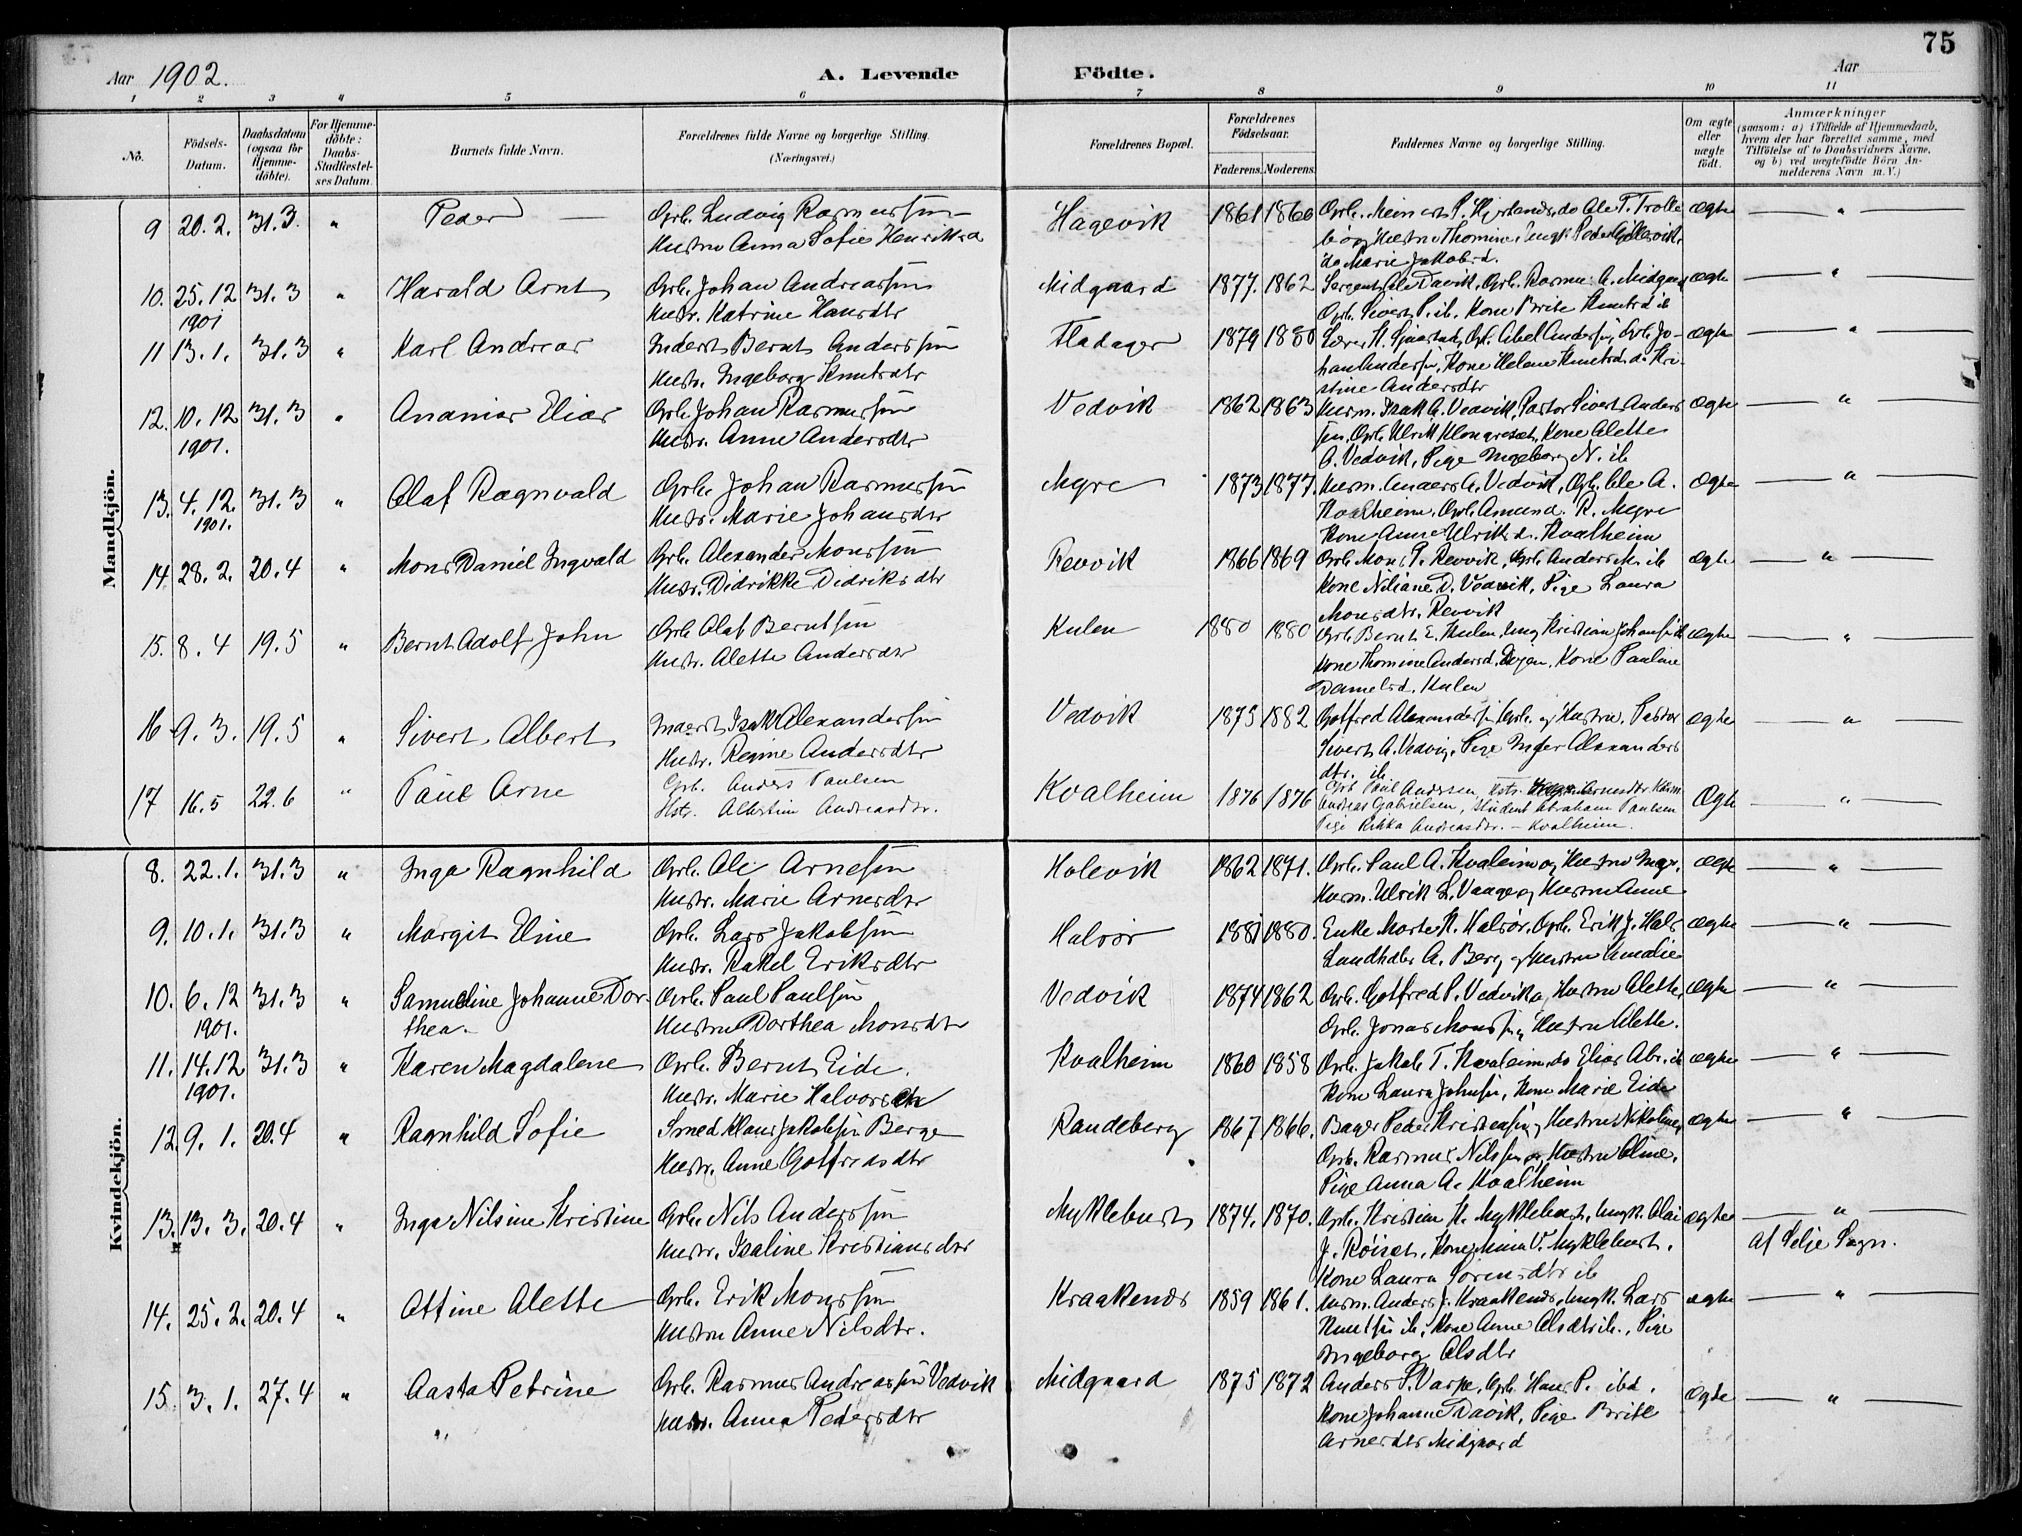 75
Aar 1902.
A. Levende Födte.
Aar
1 2 3 4 5 6 7 8 9 10 11
No.
Födsels-Datum.
Daabsdatum (ogsaa for Hjemmedöbte).
For Hjemmedöbte: Daabs-Stadfæstelses Datum.
Barnets fulde Navn.
Forældrenes fulde Navne og borgerlige Stilling.
(Næringsvei.)
Forældrenes Bopæl.
Forældrenes Födselsaar.
Faderens. Moderens.
Faddernes Navne og borgerlige Stilling.
Om ægte eller uægte födt.
Anmærkninger
(saasom: a) i Tilfælde af Hjemmedaab,
hvem der har forrettet samme, med
Tilföielse af to Daabsvidners Navne,
og b) ved uægtefödte Börn An-
melderens Navn m. V.)
Mandkjön.
9 20.2. 31.3. " Peder — Grb. Ludvig Rasmussen Hagevik 1861 1860 ægte — " —
Hustru Anna Sofie Henriksd
do Marie Jakobsd.
10. 25.12 31.3 " Harald Arnt Grb. Johan Andreassen Midgaard 1877. 1862 Sergent Ole Davik, Grb. Rasmus A. Midgaard ægte — " —
1901 Hustr. Katrine Hansdtr Grb. Sivert P. ib. Kone Brite Knutsd ib
11 13.1. 31.3 " Karl Andreas Inderst Bernt Anderssen Fladager 1879 1880 Abel Anderssen, Grb. Jo- ægte — " —
Hustr. Ingeborg Knutsdtr han Anderssen, Kone Helene Knutsd. do Kri-
stine Andersdtr
12. 10.12 31.3 " Ananias Elias Grb. Johan Rasmussen Vedvik 1862 1863 Kirkesm. Isak A. Vedvik, Pastor Sivert Anders ægte — " —
1901. Hustr. Anne Andersdtr sen, Grb. Ulrik Klongreset, Kone Alette
A. Vedvik, Pige Ingeborg N. ib
13. 4.12. 31.3 " Olaf Ragnvald Grb. Johan Rasmussen Myre 1873 1877. Anders A. Vedvik, Grb. Ole A. Ægte — " —
1901. Hustr. Marie Johansdtr Kvalheim, Grb. Amund R. Myre
Kone Anne Ulriksd. Kvalheim
14 28.2. 20.4 " Mons Daniel Ingvald Grb. Alexander Monssen Revvik 1866 1869 Grb. Mons P. Revvik, Grb. Anders M. ib ægte — " —
Hustr. Didrikke Didriksdtr Kone Niliane D. Vedvik, Pige Laura
Monsdtr. Revvik
15. 8.4 19.5 " Bernt Adolf John Grb Olaf Berntsen Kulen 1880 1880 Grb. Bernt E. Kulen, Ung. Kristian Johansen ib ægte — " —
Hustr. Alette Andersdtr Kone Thomine Andersd. Kone Pauline
Danielsd. Kulen
16 9.3. 19.5 " Sivert Albert Inderst Isak Alexandersen Vedvik 1875 1882 Gotfred Alexandersen Grb. og Hustru, Pastor ægte — " —
Hustr. Regine Andersdtr Sivert A. Vedvig, Pige Inger Alexanders
dtr. ib
17 16.5 22.6 " Paul Arne Grb. Anders Paulsen Kvalheim 1876 1876 Grb Paul Andersen, Hstr. Arnesdtr Ægte — " —
Hstr. Albertine Andreasdtr. Andreas Gabrielsen, Student Abraham Paulsen
Pige Rikka Andreasdtr. — Kvalheim.
Kvindekjön.
8. 22.1. 31.3 " Inga Ragnhild Grb. Ole Arnesen Holevik 1862 1871. Grb. Paul A. Kvaleim og Hustru ægte — " —
Hustr. Marie Arnesdtr Ulrik L. Vaage og Hustru Anne
9. 10.1. 31.3 " Margit Eline Grb. Lars Jakobsen Halsör 1881 1880. Enke Marte K. Halsör, Grb. Erik J. Hals ægte — " —
Hustr. Rakel Eriksdtr Landhdlr A. Berg og Hustru Amalie
10. 6.12 31.3 " Samueline Johanne Dor- Grb. Paul Paulsen Vedvik 1874 1862 Grb. Gotfred P. Vedvik og Hustru Alette, ægte — " —
1901. thea. Hustru Dorthea Monsdtr Grb. Jonas Monssen og Hustru Alette.
11. 14.12 31.3 " Karen Magdalene Grb. Bernt Eide. Kvalheim 1860 1858 Grb. Jakob T. Kvaleim, do Elias Abr. ib ægte — " —
1901. Hustr. Marie Halvorsdtr Kone Laura Johnsen, Kone Marie Eide
12. 9.1. 20.4 " Ragnhild Sofie Smed Klaus Jakobsen Berge Raudeberg 1867 1866. Bager Peder Kristensen og Hustru Nikoline, ægte — " —
Hustr. Anne Gotfredsdtr Grb. Rasmus Nilssen og Hustru Oline,
Pige Anna A. Kvalheim
13. 13.3. 20.4 " Inga Nilsine Kristine Grb. Nils Anderssen Myklebust 1874. 1870. Grb. Kristian K. Myklebust, Ungk. Olai ægte — " —
Hustr. Isaline Kristiansdtr J. Röiset, Kone V. Myklebust, af Selje Sogn.
Kone Laura Sörensdtr ib
14. 25.2. 20.4 " Attine Alette Grb. Erik Monssen Kraakenes 1859 1861. Anders J. Kraakenes, Ungk. Lars ægte — " —
Hustru Anne Nilsdtr. Knutsen ib, Kone Anne Olsdtr ib., Pige
Ingeborg Olsdtr
15 3.1. 27.4 " Aasta Petrine Grb. Rasmus Andreassen Vedvik Midgaard 1875 1872 Anders P. Varpe, Grb. Hans P. ibd. ægte — " —
" Hustr. Anna Pedersdtr Kone Johanne Davik, Pige Brite
Arnesdtr Midgaard